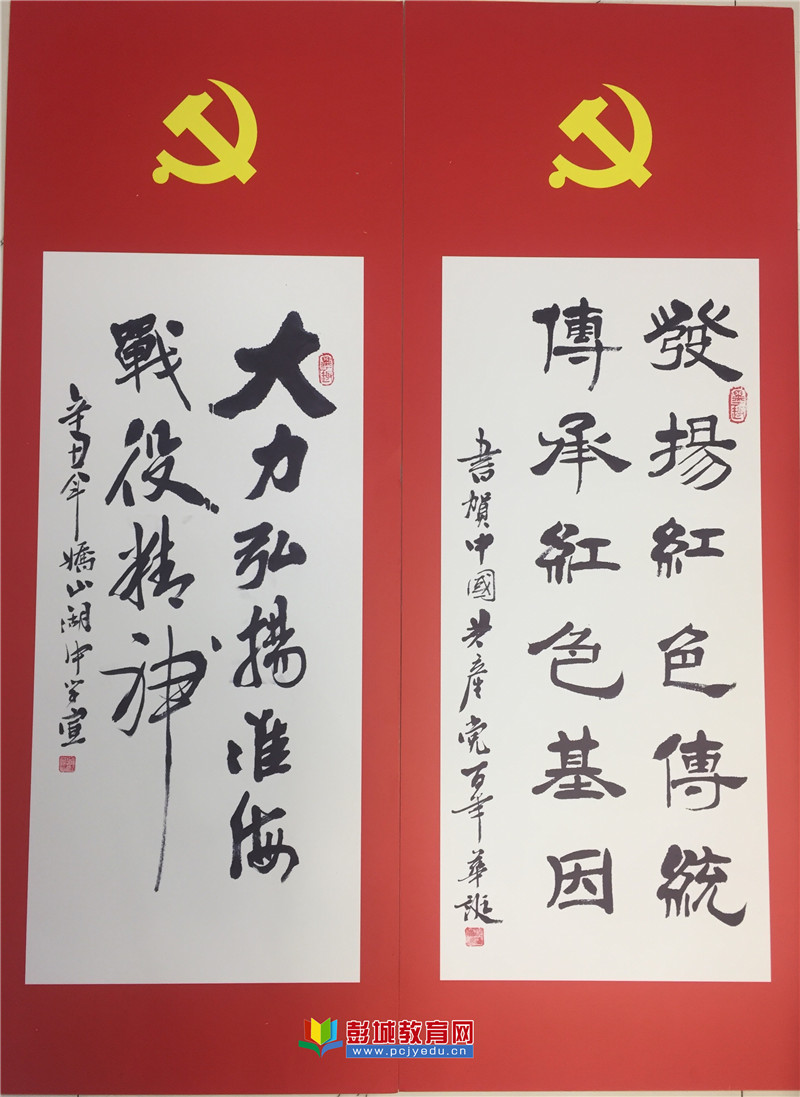 發揚紅色傳統
傳承紅色基因
書賀中國共產党百年華誕
大力弘揚淮海
戰役精神
辛丑年嬌山湖中学宣
彭城教育网
www.pcjyedu.cn